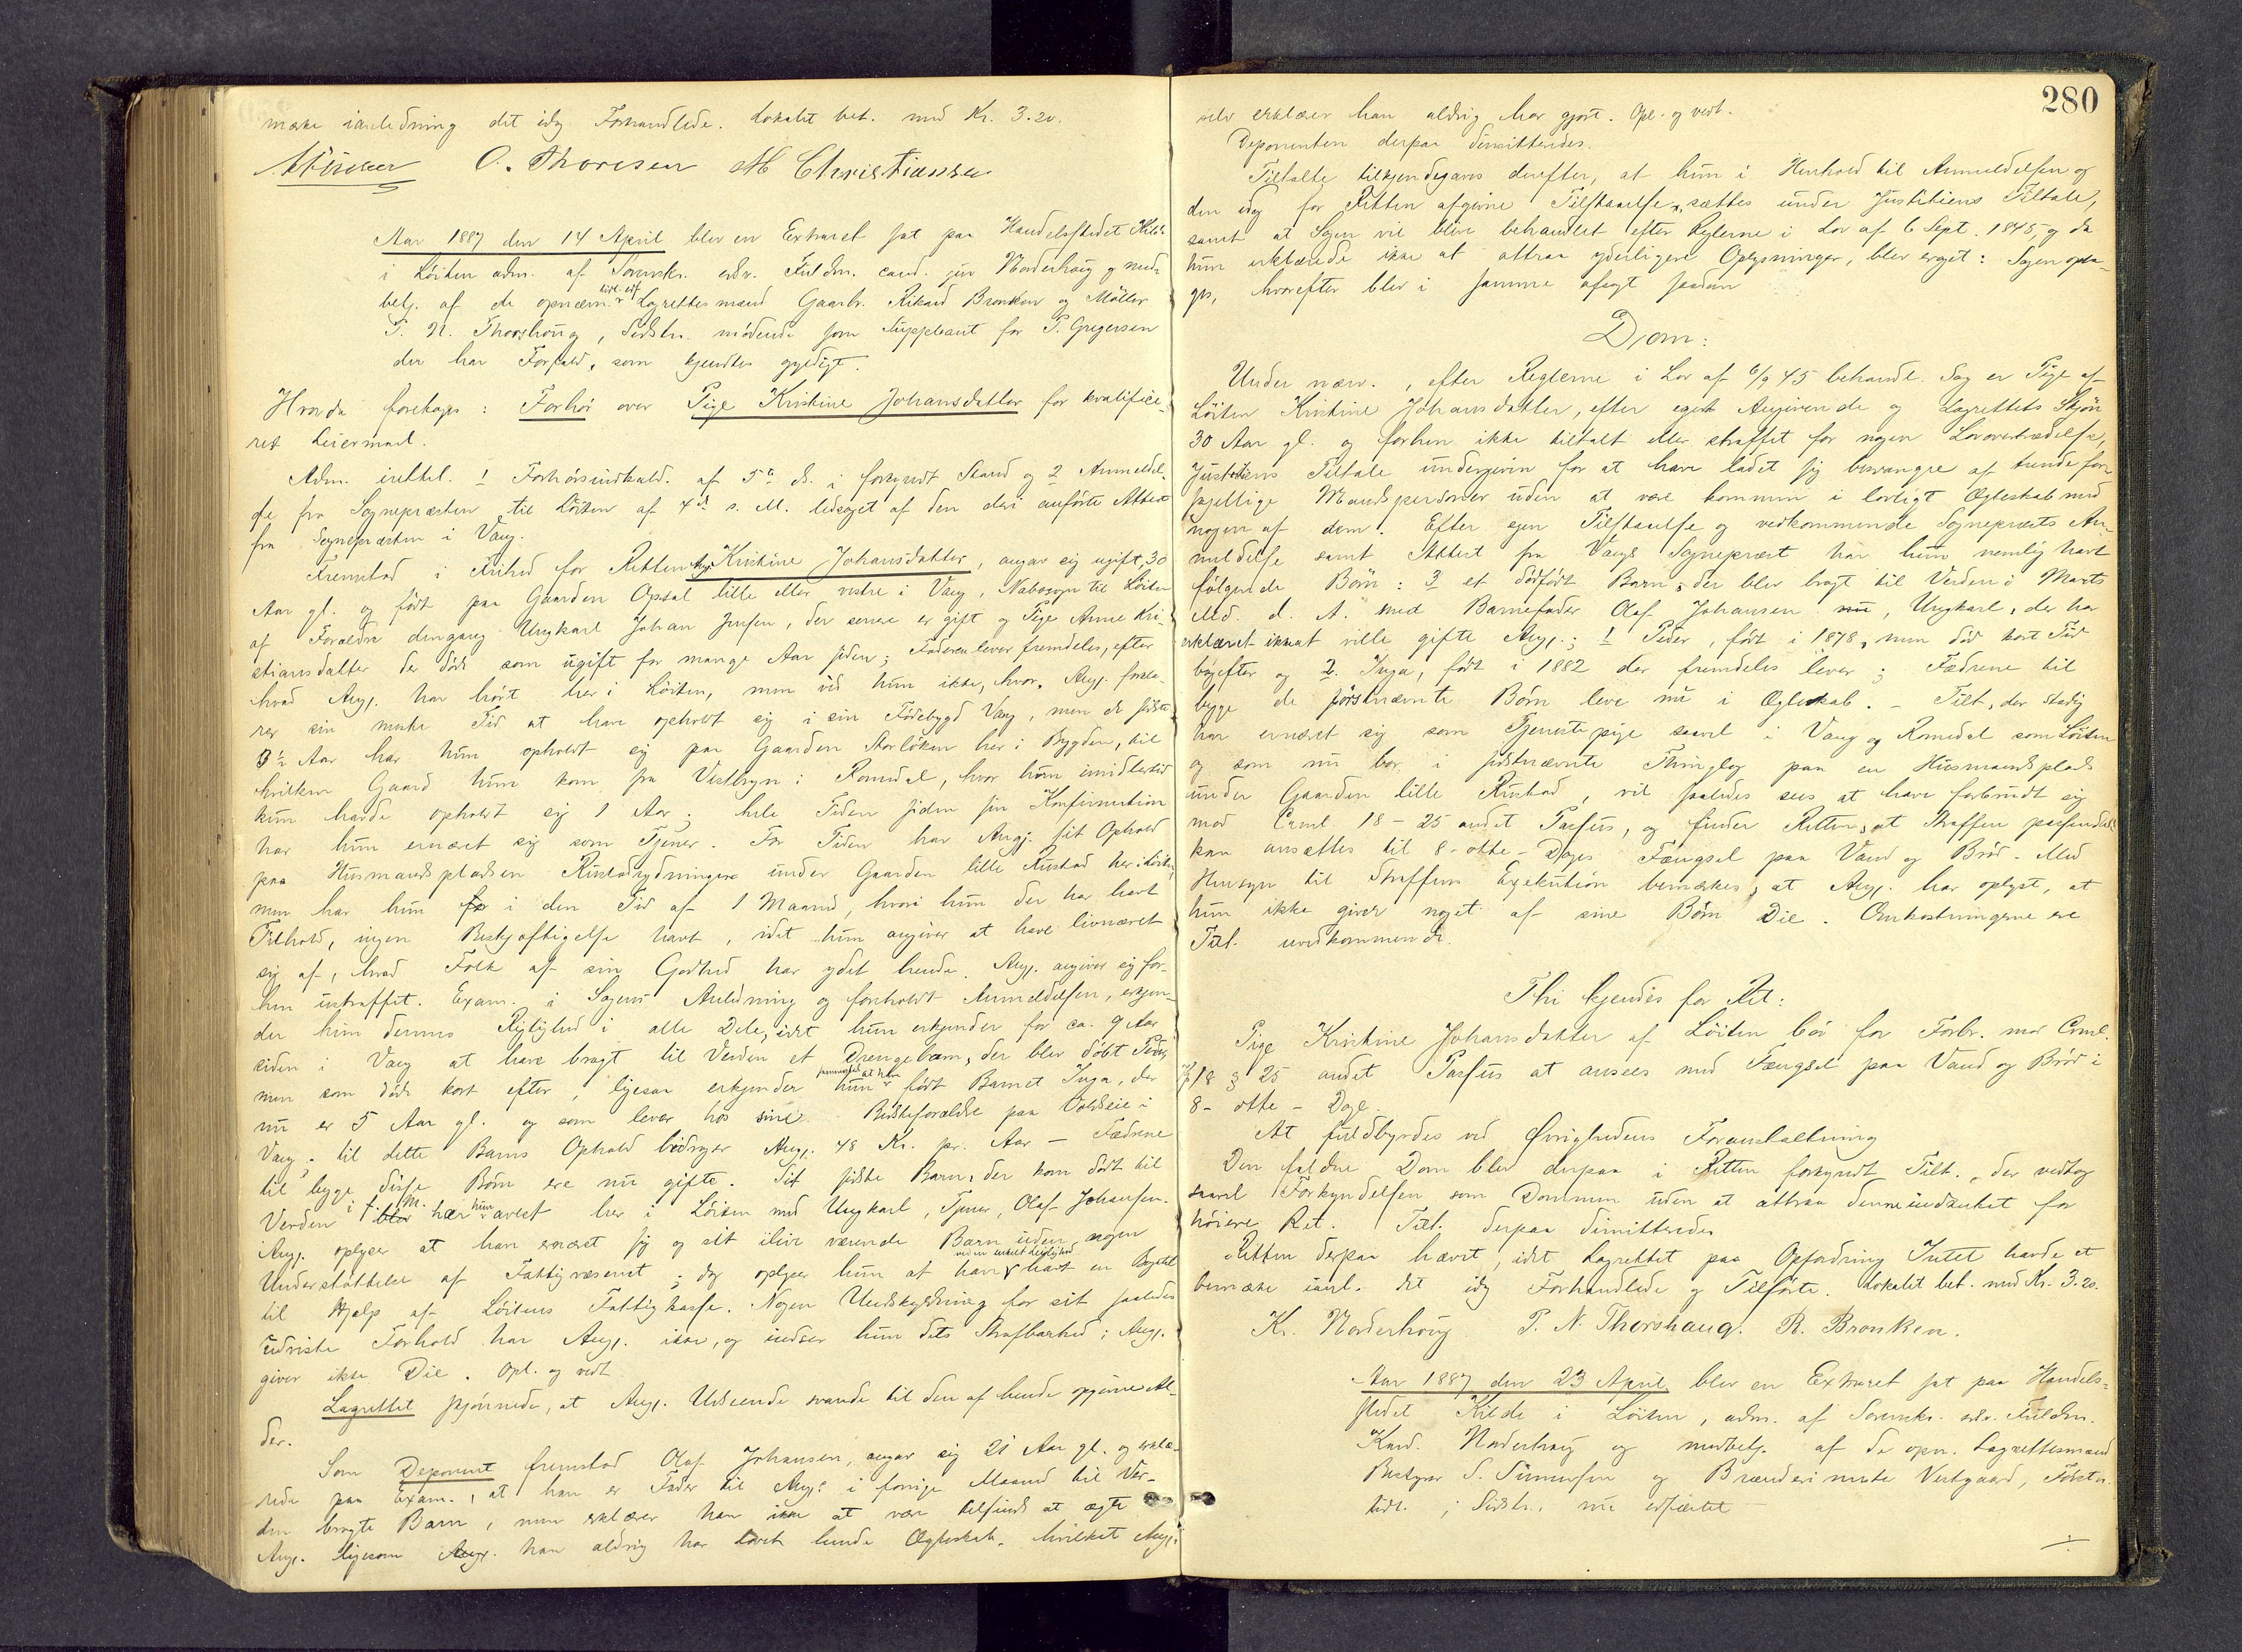 mærke i anledning det idag Forhandlede. Lokalet bet. med Kr. 3.20.
O. Thoresen M Christiansen
Aar 1887 den 14 April blev en Extraret sat paa Handelsstedet Kilde
i Løiten adm. af Sorenskr. edsv. Fuldm. cand. jur Norderhoug og med-
betj. af de opnævn. tidl. edf. Lagrettesmænd Gaardbr. Rikard Bronken og Møller
P. N. Thorshoug, Sidstn. mødende som Suppleant for P. Gregersen
der har Forfald, som kjendtes gyldigt.
Hvorda foretoges: Forhør over Pige Kristine Johansdatter for kvalifice-
ret Leiermaal.
Adm. irettel. 1 Forhørsindkald. af 5te ds. i forkyndt Stand og 2 Anmeldel-
se fra Sognepræsten til Løiten af 4de s. M. ledsaget af den deri anførte Attest
fra Sognepræsten i Vang.
Fremstod i Frihed for Retten Ang. Kristine Johansdatter, angav sig ugift, 30
Aar gl. og født paa Gaarden Opsal lille eller vestre i Vang, Nabosogn til Løiten
af Forældre dengang Ungkarl Johan Jensen, der senere er gift og Pige Anne Kri-
stiansdatter der døde som ugift for mange Aar siden; Faderen lever fremdeles, efter
hvad Ang. har hørt her i Løiten, men ved hun ikke, hvor. Ang. forkla-
rer sin meste Tid at have opholdt sig i sin Fødebygd Vang, men de sidste
3½ Aar har hun opholdt sig paa Gaarden Storløken her i Bygden, til
hvilken Gaard hun kom fra Vestbyn i Romedal, hvor hun imidlertid
kun havde opholdt sig 1 Aar; hele Tiden siden sin Konfirmation
har hun ernæret sig som Tjener. For Tiden har Ang. sit Ophold
paa Husmandspladsen Rustadrydningen under Gaarden lille Rustad her i Løiten,
men har hun i den Tid af 1 Maaned, hvori hun der har havt
Tilhold, ingen Beskjæftigelse havt, idet hun angiver at have livnæret
sig af, hvad Folk af sin Godhed har ydet hende. Ang. angiver sig for-
hen ustraffet. Exam. i Sagens Anledning og foreholdt Anmeldelsen, erkjen-
der hun dennes Rigtighed i alle Dele, idet hun erkjender for ca. 9 Aar
siden i Vang at have bragt til Verden et Drengebarn, der blev døbt Peder,
men som døde kort efter, ligesaa erkjender hun at have født Barnet Inga, der
nu er 5 Aar gl. og som lever hos sine Bedsteforældre paa Voldseie i
Vang; til dette Barns Ophold bidrager Ang. 48 Kr. pr. Aar — Fædrene
til begge disse Børn ere nu gifte. Sit sidste Barn, der kom dødt til
Verden i f. M. har hun avlet her i Løiten med Ungkarl, Tjener, Olaf Johansen.
Ang. oplyser at han ernæret sig og sit ilive værende Barn uden nogen
Understøttelse af Fattigvæsenet; dog oplyser hun at have ved en enkelt Leilighed havt en Bagatel
til Hjælp af Løitens Fattigkasse. Nogen Undskyldning for sit saaledes
udviste Forhold har Ang. ikke, og indser hun dets Strafbarhed; Ang.
giver ikke Die. Opl. og vedt.
Lagrettet skjønnede, at Ang. Udseende svarede til den af hende opgivne Al-
der.
Som Deponent fremstod Olaf Johansen, angav sig 21 Aar gl. og erklæ-
rede paa Exam., at han er Fader til Ang.s i forrige Maaned til Ver-
den bragte Barn, men erklærer han ikke at være tilsinds at ægte
Ang. ligesom han aldrig har lovet hende Ægteskab, hvilket Ang.
280
selv erklærer han aldrig har gjort. Opl. og vedt.
Deponenten derpaa dimitteredes.
Tiltalte tilkjendegaves derefter, at hun i Henhold til Anmeldelsen og
den idag for Retten afgivne Tilstaaelse, sættes under Justitiens Tiltale,
samt at Sagen vil blive behandlet efter Reglerne i Lov af 6 Sept. 1845, og da
hun erklærede ikke at attraa yderligere Oplysninger, blev eraget: Sagen opta-
ges, hvorefter blev i samme afsagt saadan
Dom:
Under nærv., efter Reglerne i Lov af 6/9 45 behandl. Sag er Pige af
Løiten Kristine Johansdatter, efter eget Angivende og Lagrettets Skjøn
30 Aar gl. og forhen ikke tiltalt eller straffet for nogen Lovovertrædelse,
Justitiens Tiltale undergiven for at have ladet sig besvangre af trende for-
skjellige Mandspersoner uden at være kommen i lovligt Ægteskab med
nogen af dem. Efter egen Tilstaaelse og vedkommende Sognepræsts An-
meldelse samt Attest fra Vangs Sognepræst har hun nemlig havt
følgende Børn: 3 et dødfødt Barn, der blev bragt til Verden i Marts
Md. d. A. med Barnefader Olaf Johansen, Ungkarl, der har
erklæret ikke at ville gifte Ang.; 1 Peder, født i 1878, men død kort Tid
derefter og 2. Inga, født i 1882 der fremdeles lever; Fædrene til
begge de førstnævnte Børn leve nu i Ægteskab. – Tilt., der stadig
har ernæret sig som Tjenestepige saavel i Vang og Romedal som Løiten
og som nu bor i sidstnævnte Thinglag paa en Husmandsplads
under Gaarden lille Rustad, vil saaledes sees at have forbrudt sig
mod Crml. 18 – 25 andet Passus, og finder Retten, at Straffen passende
kan ansættes til 8 - otte - Dages Fængsel paa Vand og Brød. Med
Hensyn til Straffens Exekution bemærkes, at Ang. har oplyst, at
hun ikke giver noget af sine Børn Die. Omkostningerne ere
Tilt. uvedkommende.
Thi kjendes for Ret:
Pige Kristine Johansdatter af Løiten bør for Forbr. mod Crml.
Kp 18 § 25 andet Passus at ansees med Fængsel paa Vand og Brød i
8 - otte - Dage.
At fuldbyrdes ved Øvrighedens Foranstaltning
Den faldne Dom blev derpaa i Retten forkyndt Tilt., der vedtog
saavel Forkyndelsen som Dommen uden at attraa denne indanket for
høiere Ret. Tilt. derpaa dimitteredes
Retten derpaa hævet, idet Lagrettet paa Opfordring Intet havde at
bemærke i anl. det idag Forhandlede og Tilførte. Lokalet bet. med Kr. 3.20.
Kr. Norderhoug P. N. Thorshaug. R. Bronken.
Aar 1887 den 23 April blev en Extraret sat paa Handels-
stedet Kilde i Løiten, adm. af Sorenskr. edsv. Fuldm.
Kand. Norderhoug og medbetj. af de opn. Lagrettesmænd
Bestyrer S. Simensen og Brænderimester Vestgaard, Førstn.
tidl.; Sidstn. nu edfæstet —